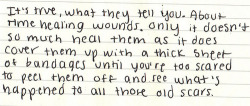 It's true, what they tell you. About
time healing wounds. Only it doesn't
so much heal them as it does
cover them up with a thick sheet
of bandages until you're too scared
to peel them off and see what's
happened to all those old scars.